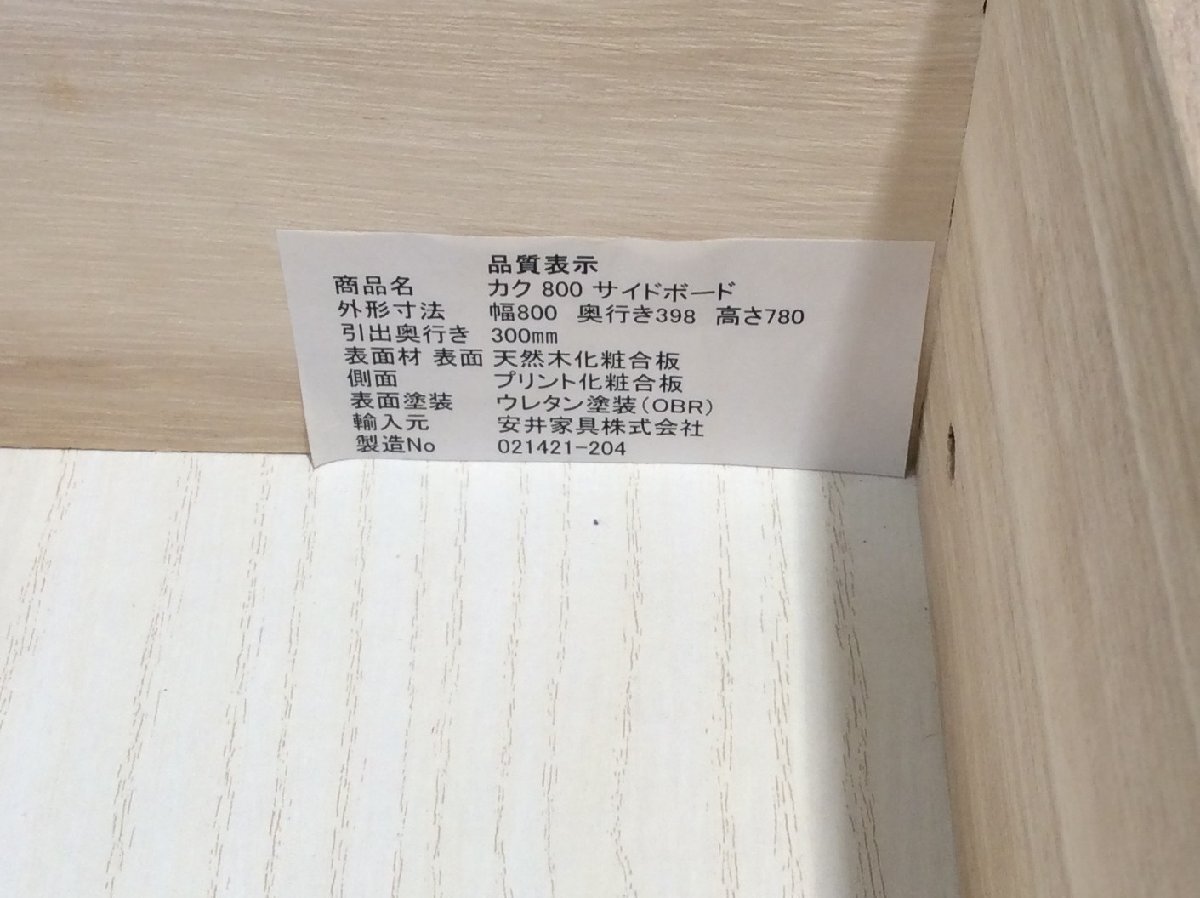 品質表示
商品名 カク 800 サイドボード
外形寸法 幅800 奥行き398 高さ780
引出奥行き 300mm
表面材 表面 天然木化粧合板
側面 プリント化粧合板
表面塗装 ウレタン塗装(OBR)
輸入元 安井家具株式会社
製造No 021421-204